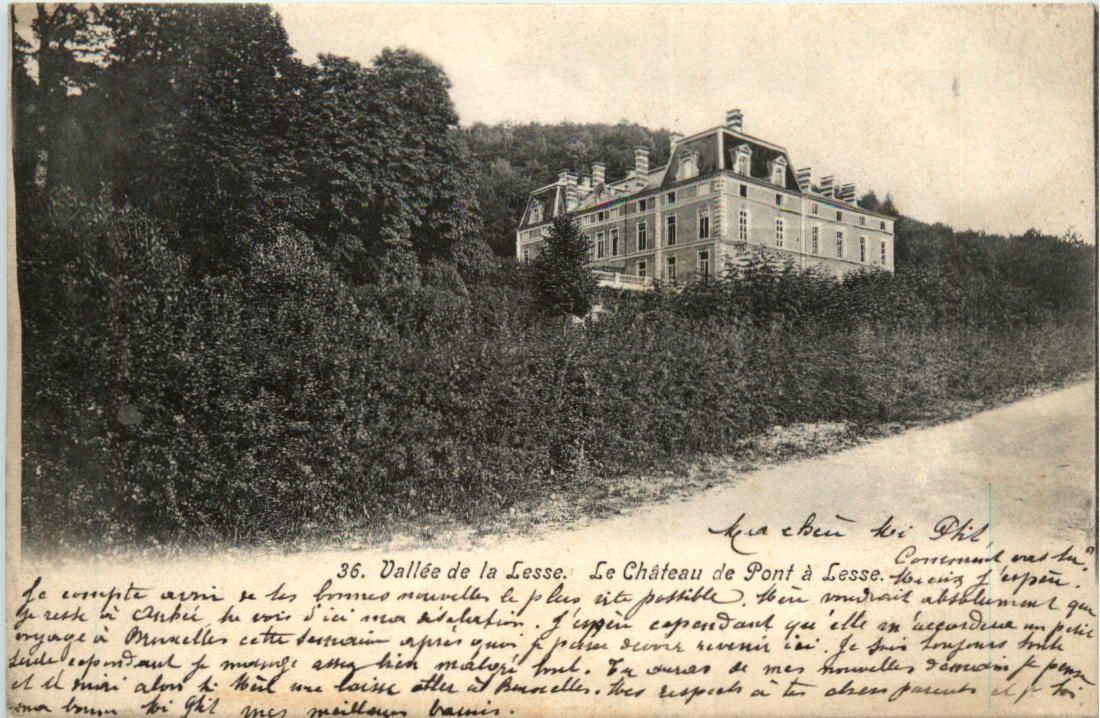 Ma chère Mi
Comment vas tu?
Mieux j'espère.
36. Vallée de la Lesse. Le Château de Pont à Lesse.
Je compte avoir de tes bonnes nouvelles le plus vite possible. Mère voudrait absolument que
Je reste à tu vois d'ici ma désolation. J'espère cependant qu'elle m'accordera un petit
voyage à Bruxelles cette semaine après quoi je pense devoir revenir ici. Je suis toujours toute
seule cependant je mange assez bien malgré tout. Tu auras de mes nouvelles demain je pense
et alors si me laisse aller à Bruxelles. Mes respects à tes chers parents et je toi
ma bonne Mi mes meilleurs baisers.